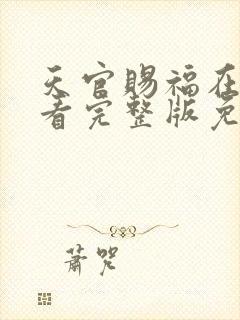 天官赐福在
看完整版免
萧咒